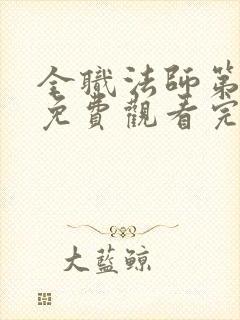 全職法師第
免費觀看完
大藍鯨